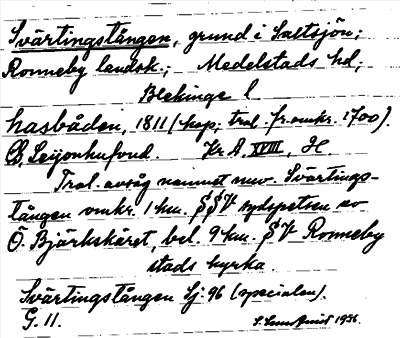 Svärtingstången, grund i Saltsjön;
Ronneby landsk.; Medelstads hd;
Blekinge l.
hasbåden, 1811 (kop; trol. fr. omkr. 1700).
Leijonhufvud. Kr. A. XVIII, H.
Trol. avsåg namnet nuv. Svärtings-
tången omkr. 1 km. S§V sydspetsen av
Ö. Bjärkskäret, bel. 9 km. S§V Ronneby
stads kyrka.
Svärtingstången Sj: 96 (specialen).
G. 11. 1936.